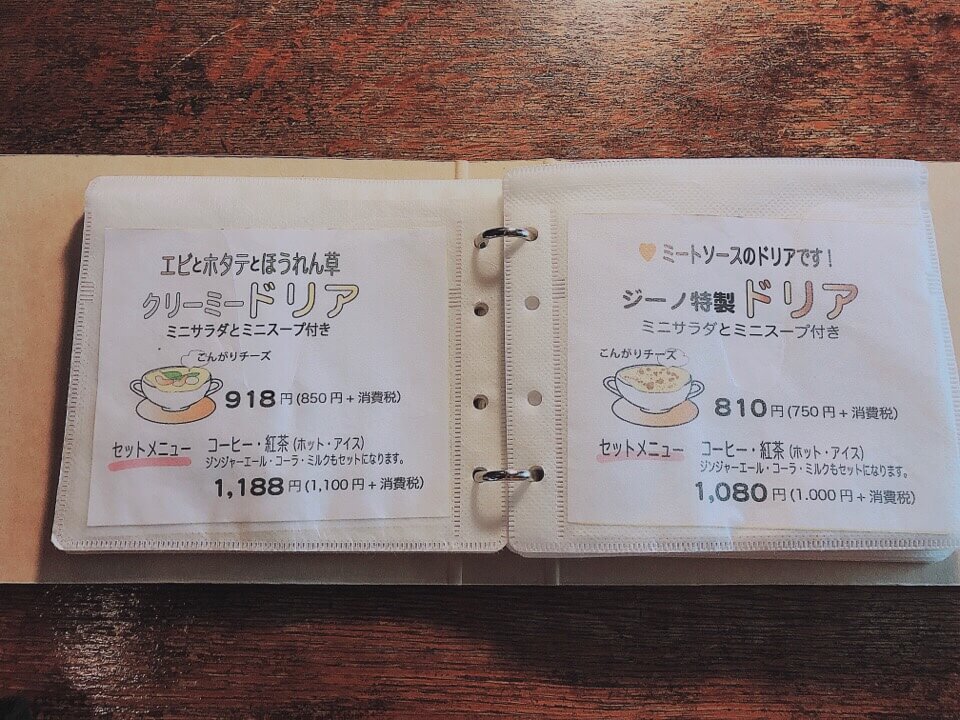 エビとホタテとほうれん草
クリーミードリア
ミニサラダとミニスープ付き
こんがりチーズ
918円(850円+消費税)
セットメニュー コーヒー・紅茶(ホット・アイス)
ジンジャーエール・コーラ・ミルクもセットになります。
1,188円(1,100円+消費税)
ミートソースのドリアです!
ジーノ特製ドリア
ミニサラダとミニスープ付き
こんがりチーズ
810円(750円+消費税)
セットメニュー コーヒー・紅茶(ホット・アイス)
ジンジャーエール・コーラ・ミルクもセットになります。
1,080円(1.000円+消費税)